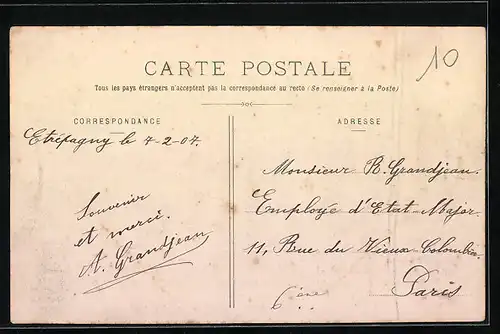 10
CARTE POSTALE
Tous les pays étrangers n'acceptent pas la correspondance au recto (Se renseigner à la Poste)
CORRESPONDANCE
Etrépagny le 7-2-07.
Souvenir
et merci.
A. Grandjean
ADRESSE
Monsieur R. Grandjean.
Employé d'Etat-Major.
11, Rue du Vieux-Colombier.
Paris
6ème